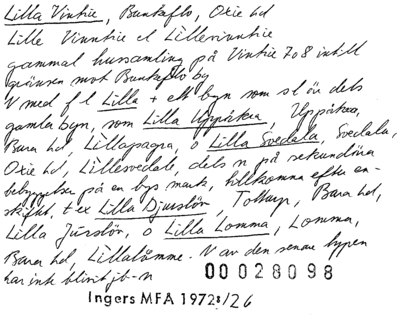 Lilla Vintrie, Bunkeflo, Oxie hd
Lille Vinntrie el Lillevinntrie
gammal hussamling på Vintrie 7o8 intill
gränsen mot Bunkeflo by
N med f l Lilla + ett byn som sl är dels
gamla byn, som Lilla Uppåkra, Uppåkra,
Bara hd, Lillapågra, o Lilla Svedala, Svedala,
Oxie hd, Lillesvedale, dels n på sekundära
bebyggelser på en bys mark, tillkomna efter en-
skiftet, t ex Lilla Djurslöv, Tottarp, Bara hd,
Lilla Jurslöv, o Lilla Lomma, Lomma,
Bara hd, Lillalömme. N av den senare typen
har inte blivit jb-n
00028098
Ingers MFA 1972:/26